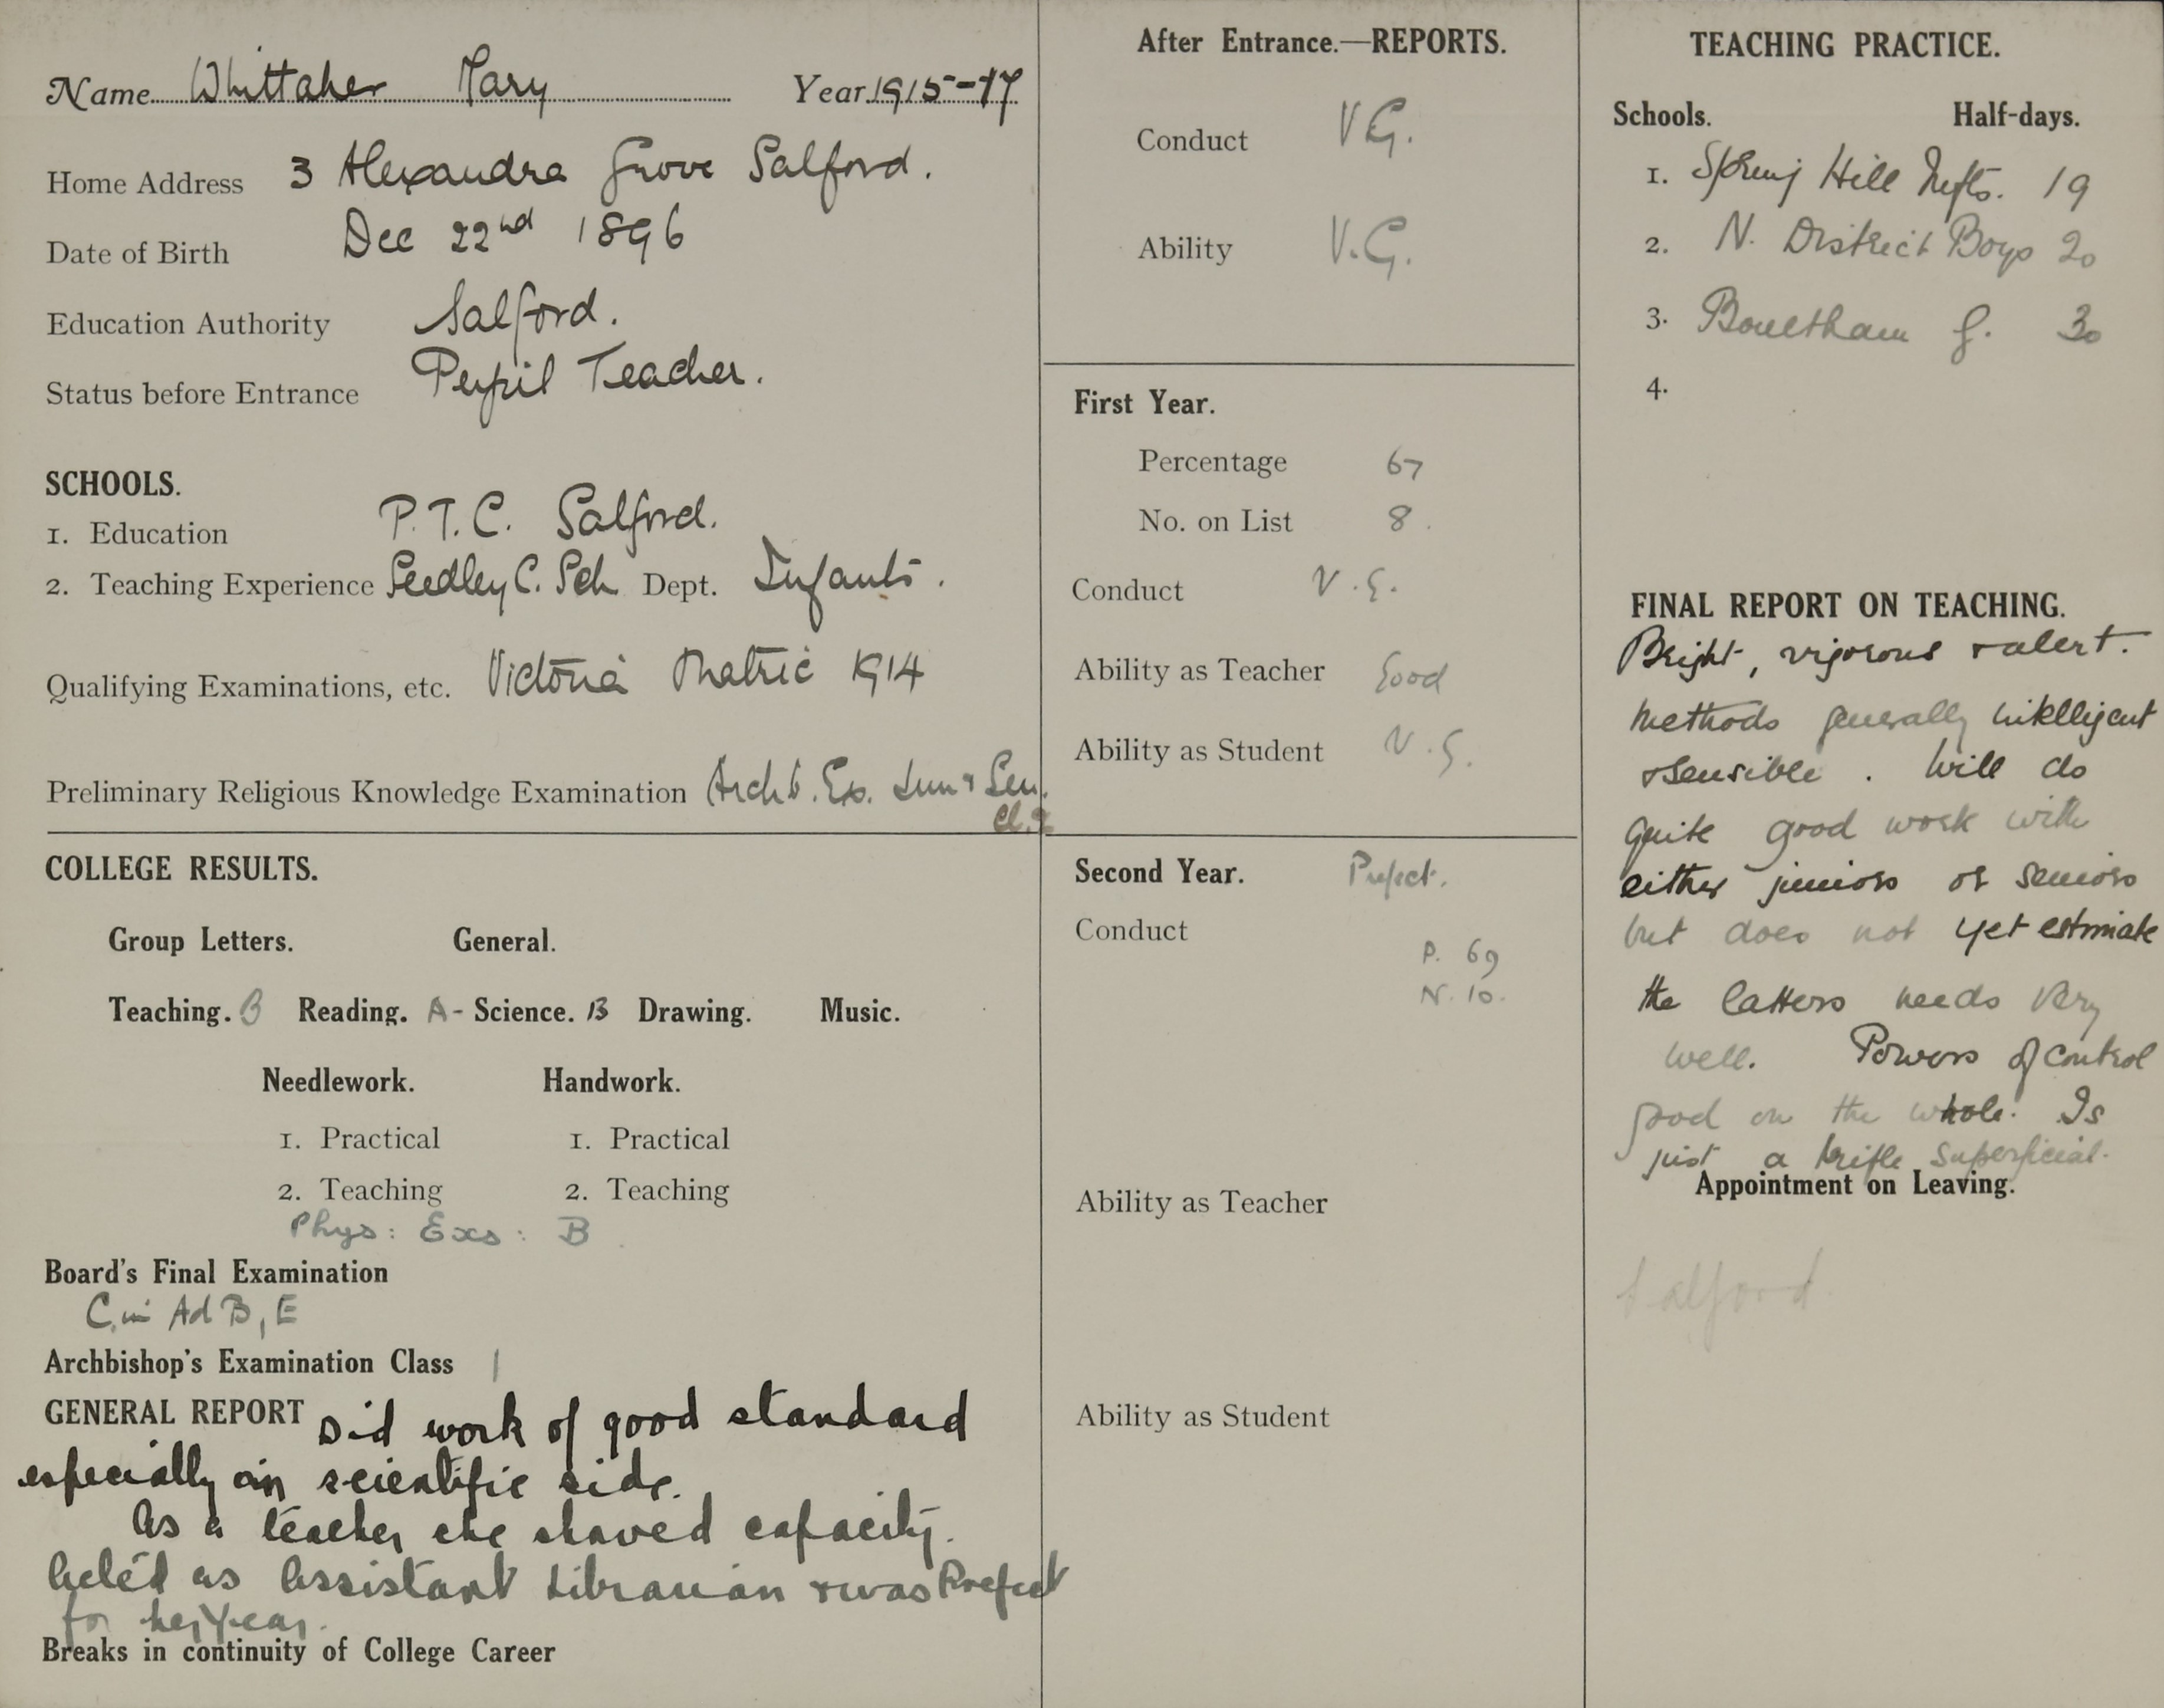 Name Whittaker Mary Year 1915-17
Home Address 3 Alexandra Grove Salford.
Date of Birth Dec 22nd 1896
Education Authority Salford.
Status before Entrance Pupil Teacher.
SCHOOLS.
1. Education P.T.C. Salford.
2. Teaching Experience Seedley C. Sch Dept. Infants.
Qualifying Examinations, etc. Victoria Matric 1914
Preliminary Religious Knowledge Examination Archb. Ex. Jun & Sen.
Cl. 2
COLLEGE RESULTS.
Group Letters. General.
Teaching. B Reading. A- Science. B Drawing. Music.
Needlework. Handwork.
1. Practical 1. Practical
2. Teaching 2. Teaching
Phys: Exs: B
Board's Final Examination
C. in Ad B, E
Archbishop's Examination Class 1
GENERAL REPORT Did work of good standard
especially on scientific side.
As a teacher she showed capacity.
Acted as Assistant Librarian & was Prefect
for her Year.
Breaks in continuity of College Career
After Entrance.—REPORTS.
Conduct V G.
Ability V.G.
First Year.
Percentage 67
No. on List 8.
Conduct V.G.
Ability as Teacher Good
Ability as Student V.G.
Second Year. Prefect.
Conduct
P. 69
N. 10.
Ability as Teacher
Ability as Student
TEACHING PRACTICE.
Schools. Half-days.
1. Spring Hill Infts. 19
2. N. District Boys 20
3. Boultham G. 30
4.
FINAL REPORT ON TEACHING.
Bright, vigorous & alert.
Methods generally intelligent
& sensible. Will do
quite good work with
either juniors or seniors
but does not yet estimate
the latters needs very
well. Powers of control
good on the whole. Is
just a trifle superficial.
Appointment on Leaving.
Salford.